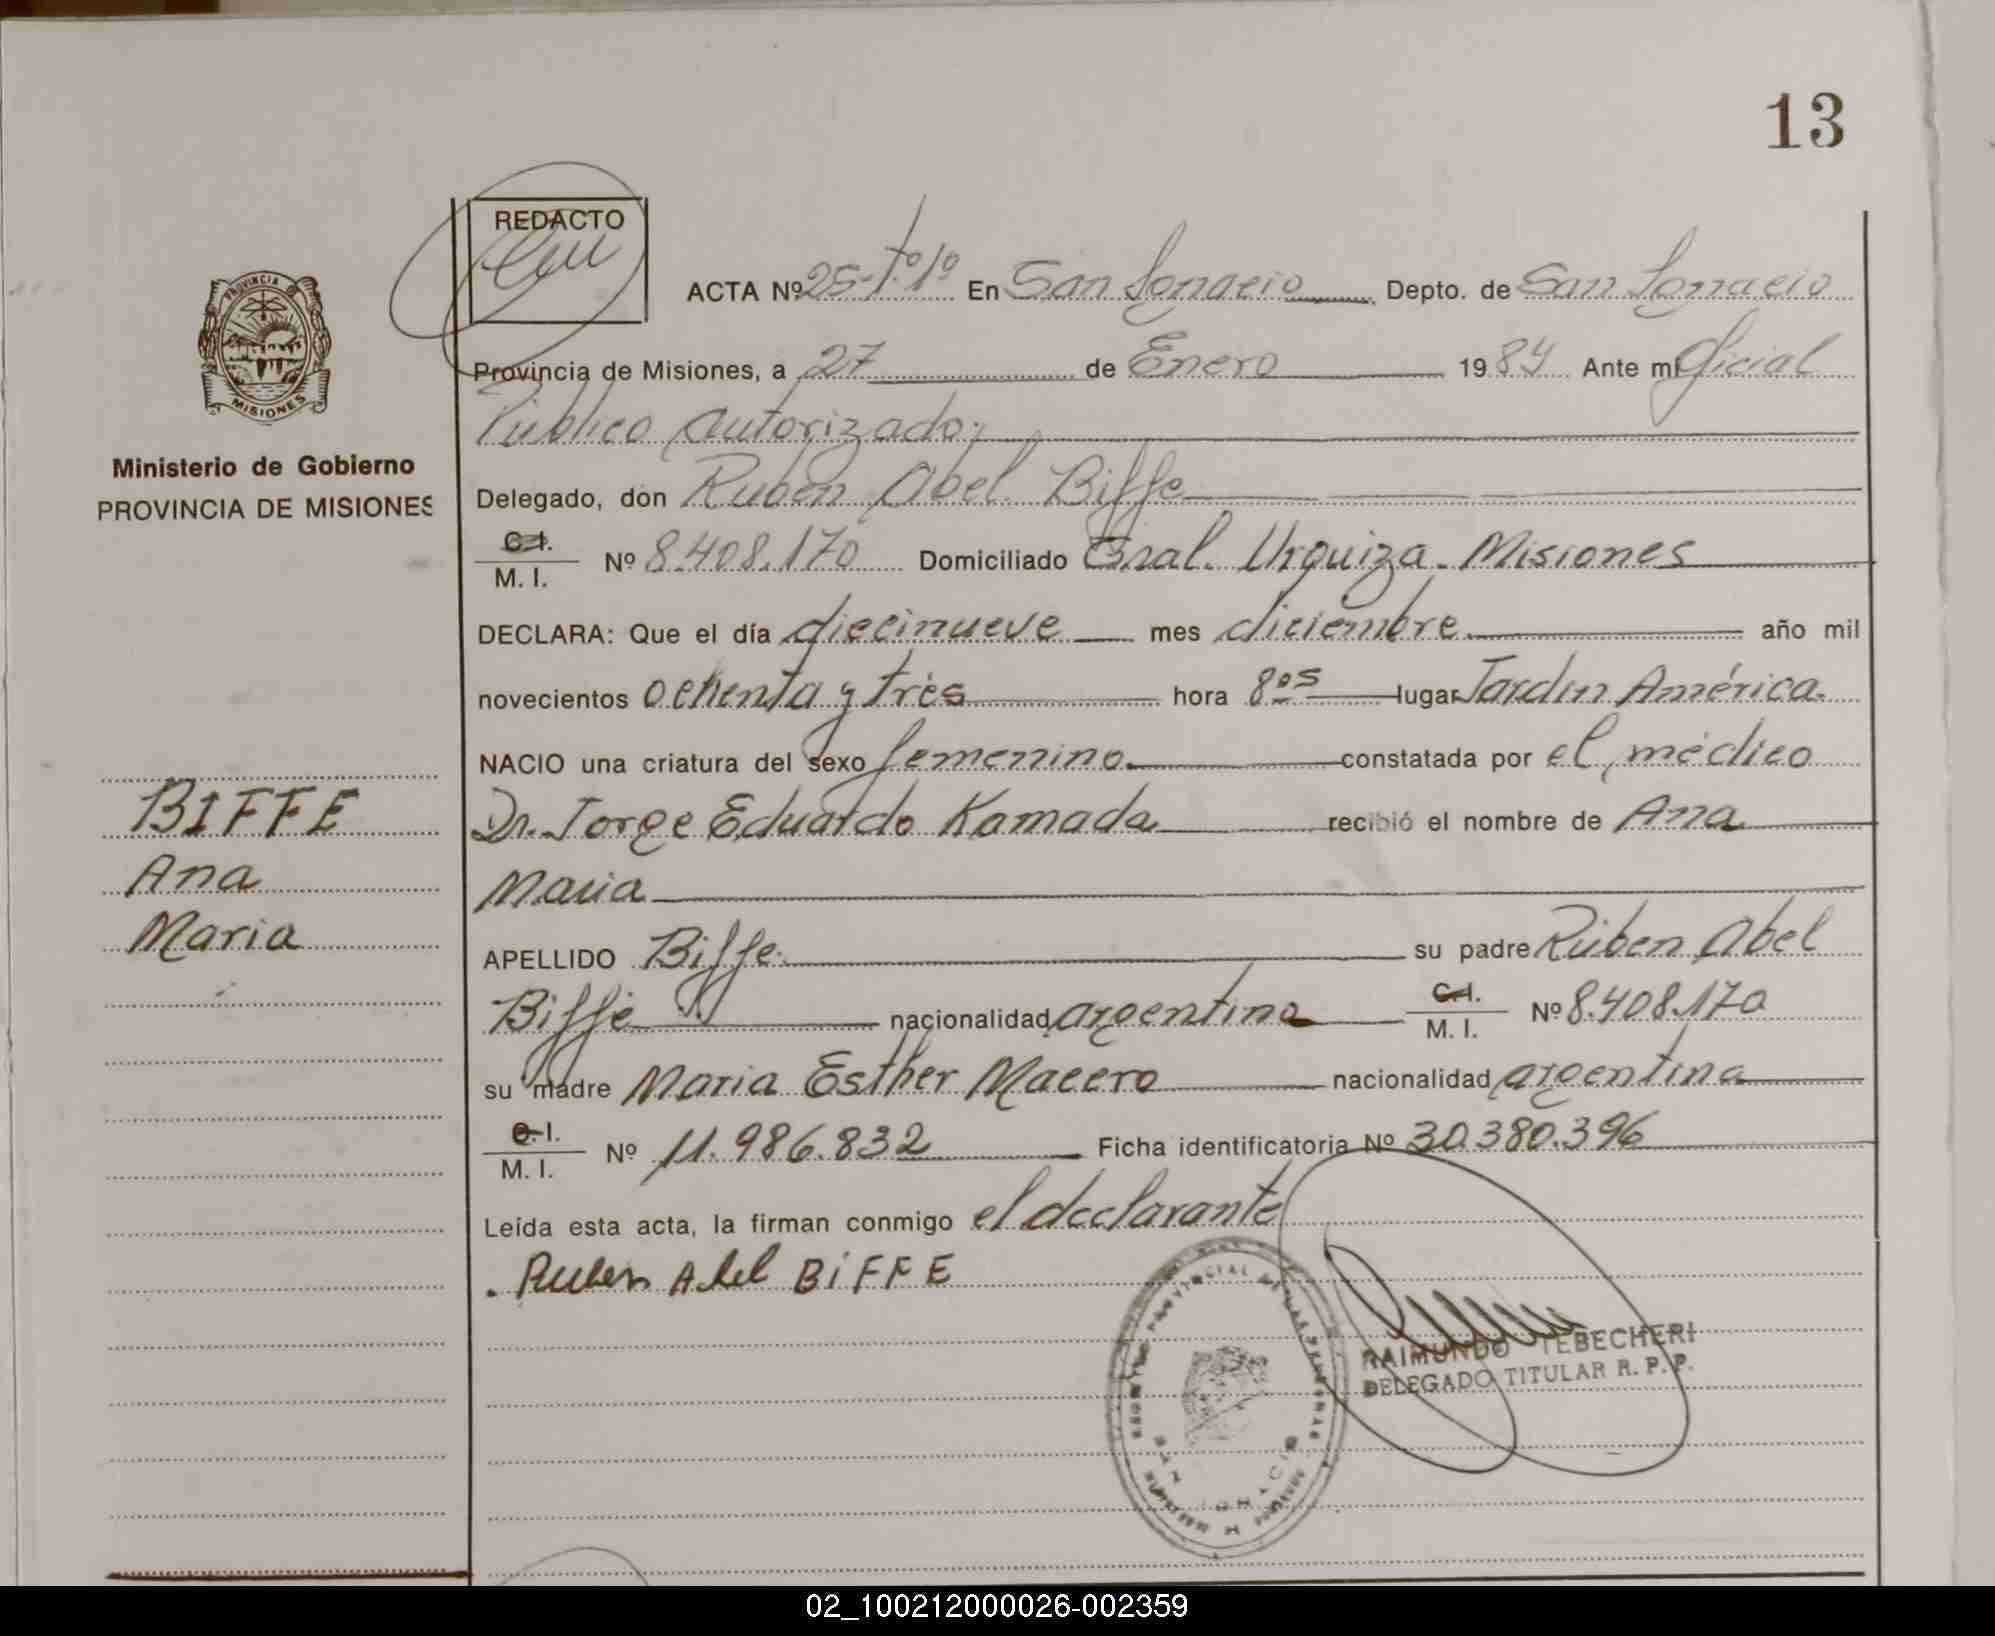 13
REDACTO
ACTA Nº 25-Tº1º En San Ignacio Depto. de San Ignacio
Provincia de Misiones, a 27 de Enero 1984 Ante mi Oficial
Público autorizado;
Delegado, don Ruben Abel Biffe
C.I. M.I. Nº 8.408.170 Domiciliado Gral. Urquiza. Misiones
DECLARA: Que el día diecinueve mes diciembre año mil
novecientos ochenta y tres hora 8os lugar Jardin América.
NACIO una criatura del sexo femenino. constatada por el médico
Dr. Jorge Eduardo Kamada recibió el nombre de Ana
Maria
APELLIDO Biffe. su padre Rúben Abel
Biffe nacionalidad argentina C.I. M.I. Nº 8.408.170
su madre Maria Esther Macero nacionalidad argentina
C.I. M.I. Nº 11.986.832 Ficha identificatoria Nº 30.380.396
Leída esta acta, la firman conmigo el declarante
. Ruben Abel BiFFE
RAIMUNDO TEBECHERI
DELEGADO TITULAR R. P. P.
SAN IGNACIO
PROVINCIA DE
MISIONES
Ministerio de Gobierno
PROVINCIA DE MISIONES
BIFFE
Ana
Maria
02_100212000026-002359